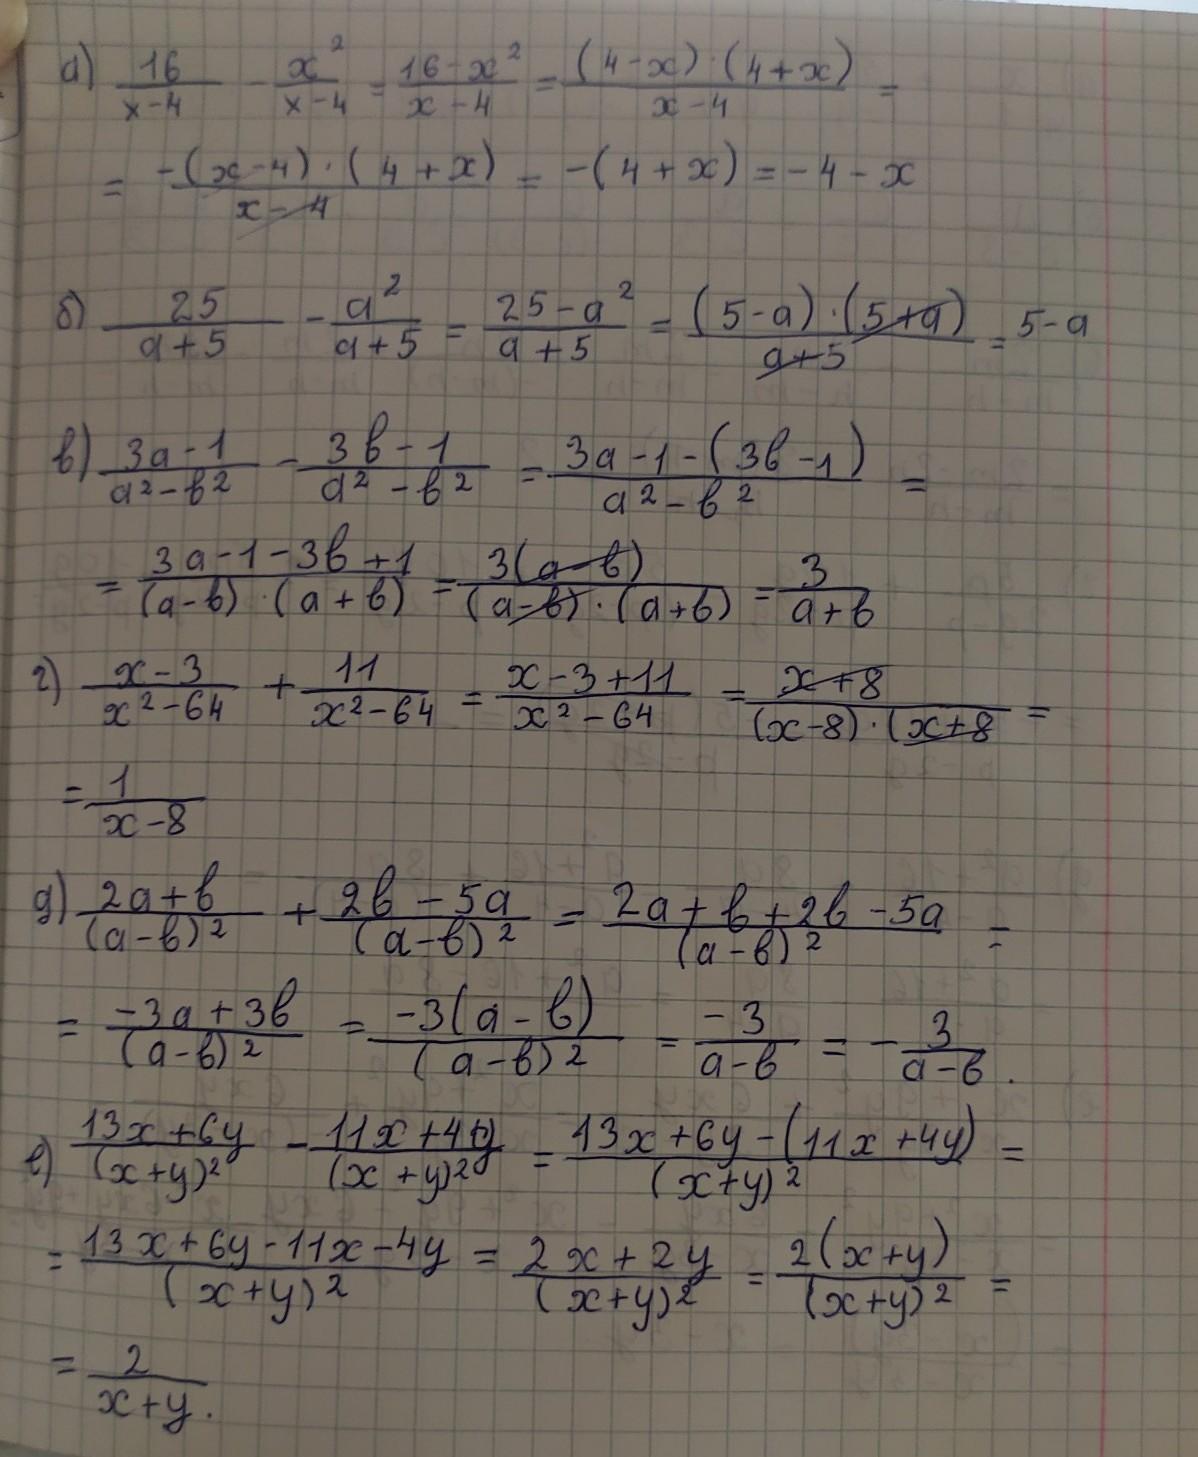 а) 16/(x-4) - x²/(x-4) = (16-x²)/(x-4) = ((4-x)·(4+x))/(x-4) =
= (-(x-4)·(4+x))/(x-4) = -(4+x) = -4-x
б) 25/(a+5) - a²/(a+5) = (25-a²)/(a+5) = ((5-a)·(5+a))/(a+5) = 5-a
в) (3a-1)/(a²-b²) - (3b-1)/(a²-b²) = (3a-1-(3b-1))/(a²-b²) =
= (3a-1-3b+1)/((a-b)·(a+b)) = (3(a-b))/((a-b)·(a+b)) = 3/(a+b)
г) (x-3)/(x²-64) + 11/(x²-64) = (x-3+11)/(x²-64) = (x+8)/((x-8)·(x+8) =
= 1/(x-8)
д) (2a+b)/(a-b)² + (2b-5a)/(a-b)² = (2a+b+2b-5a)/(a-b)² =
= (-3a+3b)/(a-b)² = (-3(a-b))/(a-b)² = -3/(a-b) = -3/(a-b).
е) (13x+6y)/(x+y)² - (11x+4y)/(x+y)² = (13x+6y-(11x+4y))/(x+y)² =
= (13x+6y-11x-4y)/(x+y)² = (2x+2y)/(x+y)² = (2(x+y))/(x+y)² =
= 2/(x+y).